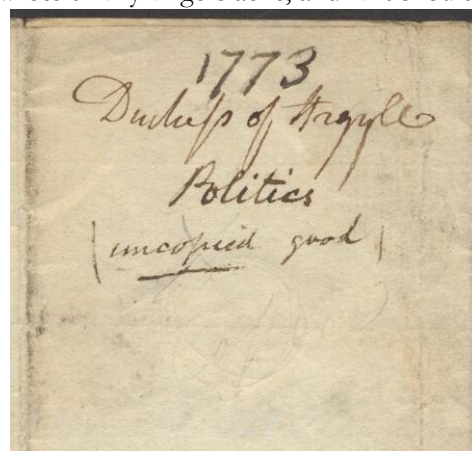 1773
Duchess of Argylle
Politics
(uncopied good)